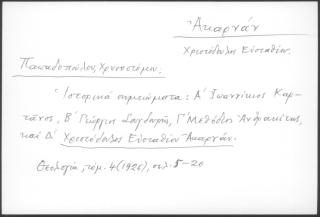 Ἀκαρνάν
Χριστόδουλος Εὐσταθίου.
Παπαδοπούλου, Χρυσοστόμου:
Ἱστορικὰ σημειώματα: Α΄ Ἰωαννίκιος Καρ-
τάνος, Β΄ Γεώργιος Σουγδουρῆς, Γ΄ Μεθόδιος Ἀνθρακίτης,
καὶ Δ΄ Χριστόδουλος Εὐσταθίου Ἀκαρνάν.
Θεολογία, τόμ. 4 (1926), σελ. 5-20